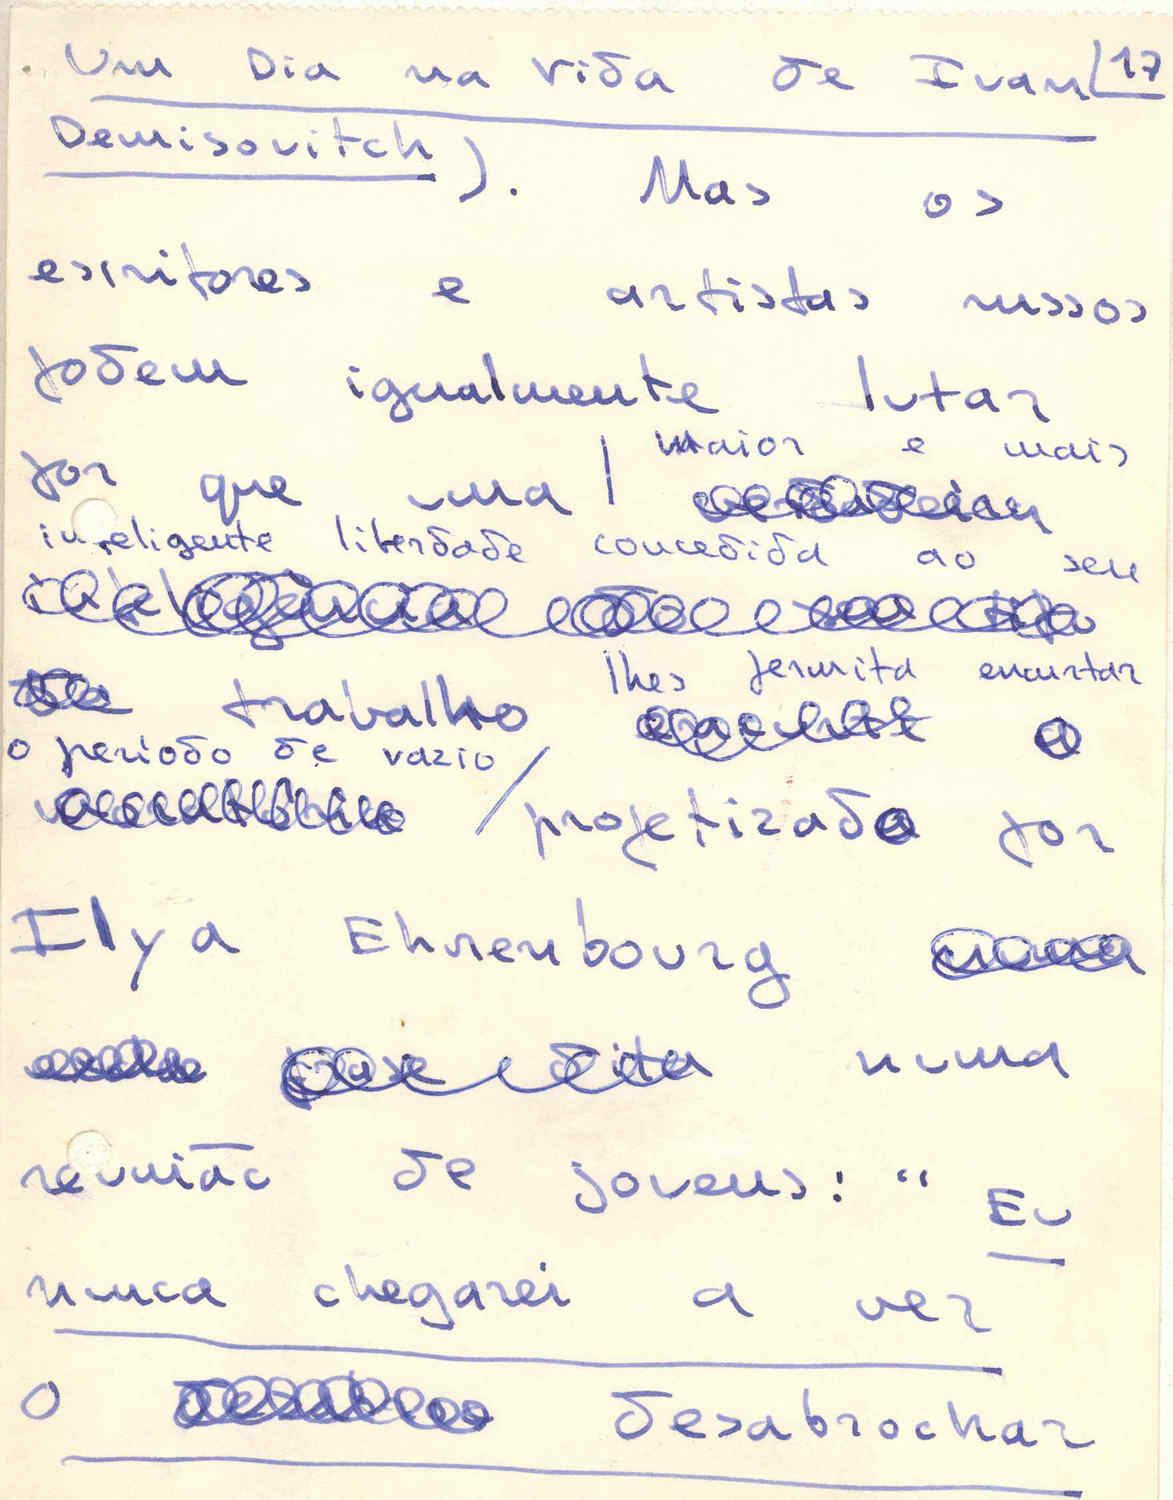 Um Dia na Vida de Ivan 17
Demisovitch). Mas os
escritores e artistas russos
podem igualmente lutar
por que uma
maior e mais
inteligente liberdade concedida ao seu
trabalho
lhes permita encurtar
o periodo de vazio
projetizado por
Ilya Ehrenbourg
numa
reunião de jovens: "Eu
nunca chegarei a ver
o desabrochar